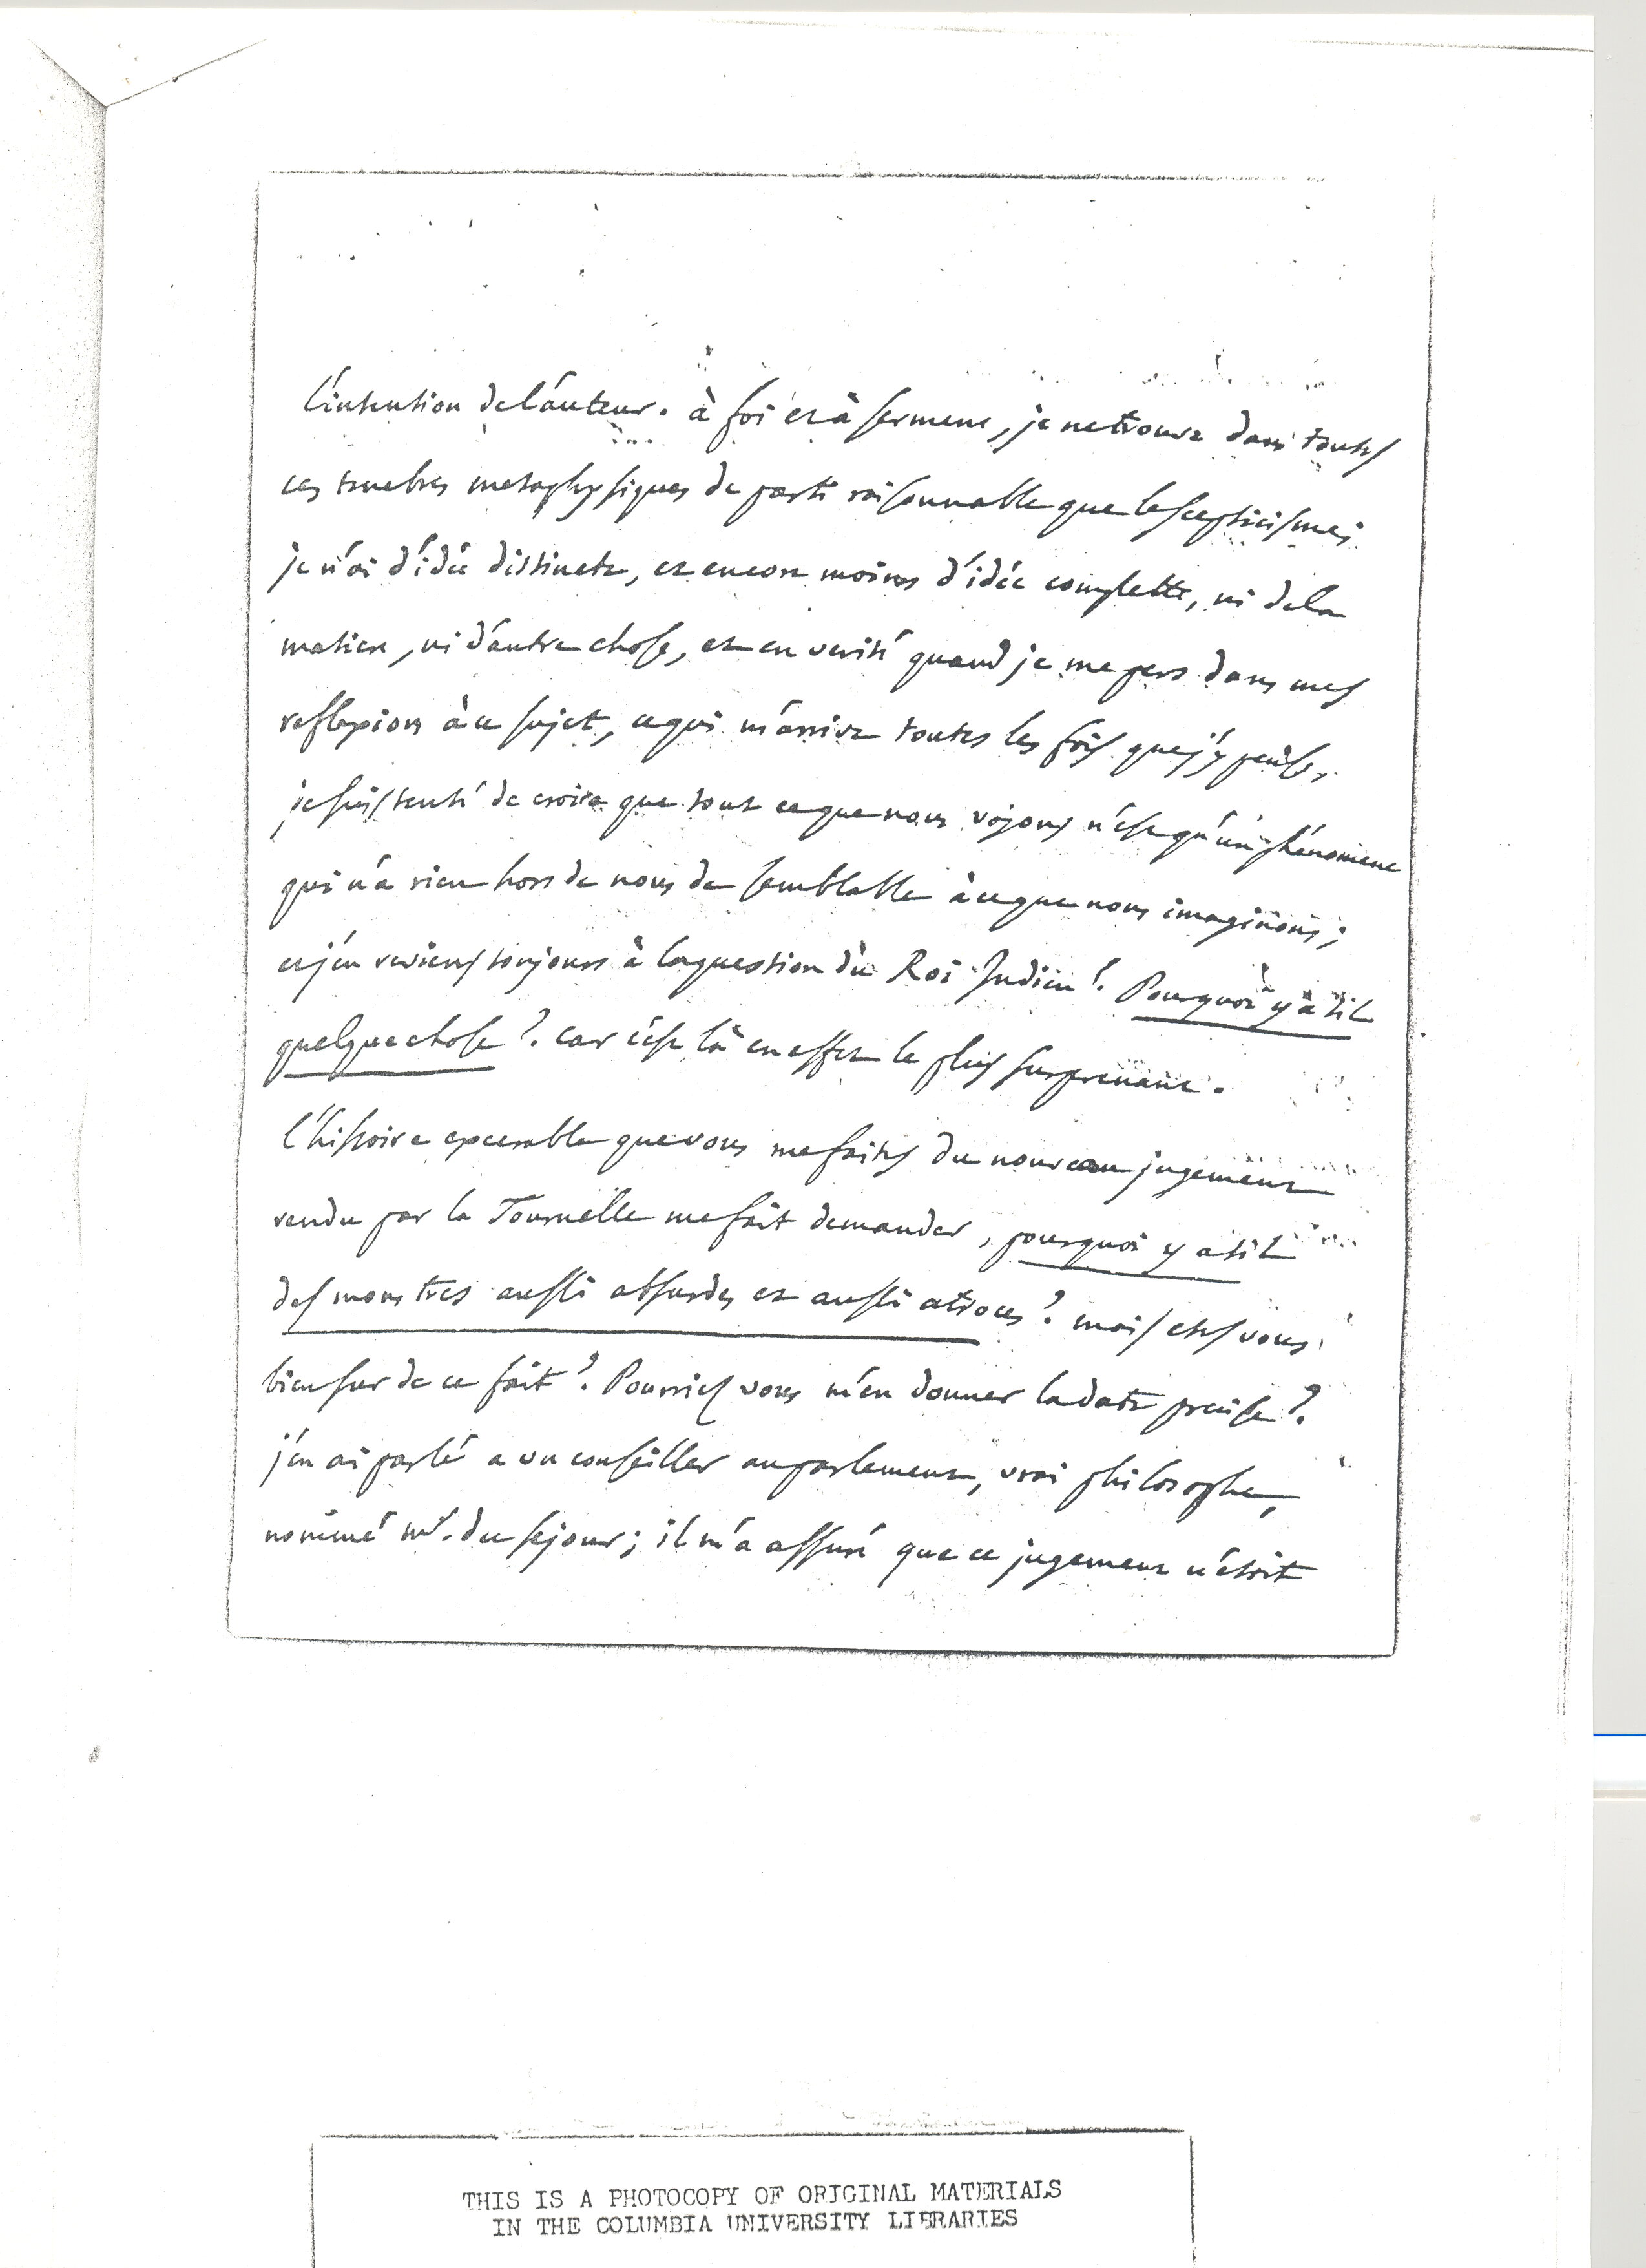 l'intention de l'auteur. à foi et à serment, je ne trouve dans toutes
ces tenebres metaphysiques de parti raisonnable que le scepticisme;
je n'ai d'idée distincte, et encore moins d'idée complette, ni de la
matiere, ni d'autre chose, et en verité quand je me pers dans mes
reflexions à ce sujet, ce qui m'arrive toutes les fois que j'y pense,
je suis tenté de croire que tout ce que nous voyons n'est qu'un phénomene
qui n'a rien hors de nous de semblable à ce que nous imaginons;
et j'en reviens toujours à la question du Roi Indien? Pourquoi y a til
quelque chose? car c'est là en effet le plus surprenant.
l'histoire execrable que vous me faites du nouveau jugement
rendu par la Tournelle me fait demander, pourquoi y a til
des monstres aussi absurdes et aussi atroces? mais etes vous
bien sur de ce fait? Pourriez vous m'en donner la date precise?
j'en ai parlé a un conseiller au parlement, vrai philosophe,
nommé mr. du sejour; il m'a assuré que ce jugement n'étoit
THIS IS A PHOTOCOPY OF ORIGINAL MATERIALS
IN THE COLUMBIA UNIVERSITY LIBRARIES